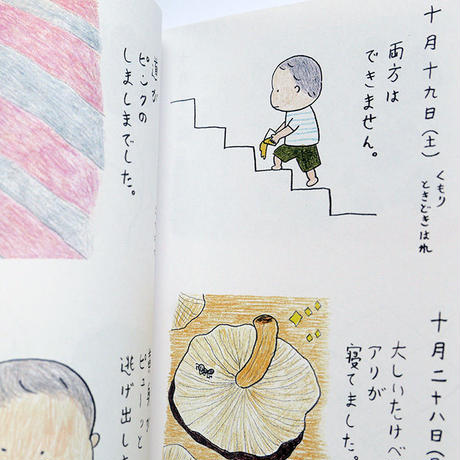 十月十九日(土)
くもり
ときどきはれ
両方は
できません。
十月二十八日(
大しいたけべ
アリが
寝てました。
道が
ピンクの
しましまでした。
ピューンと
逃げ出し